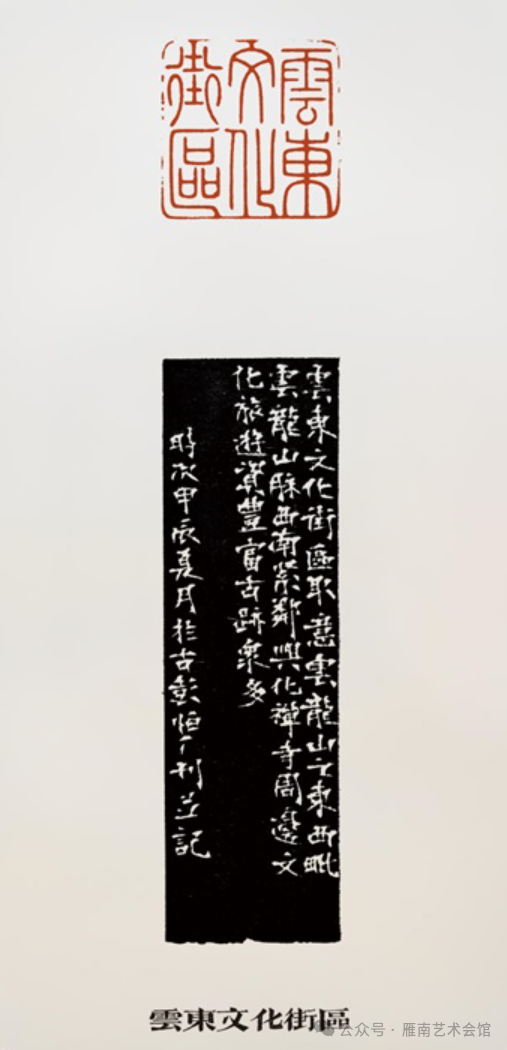 雲東
文化
街區
雲東文化街區取意雲龍山之東西毗
雲龍山脉西南紧鄰興化禪寺周邊文
化旅遊資豐富古跡衆多
時次甲辰夏月於古彭恒广刊并記
雲東文化街區
公众号·雁南艺术会馆